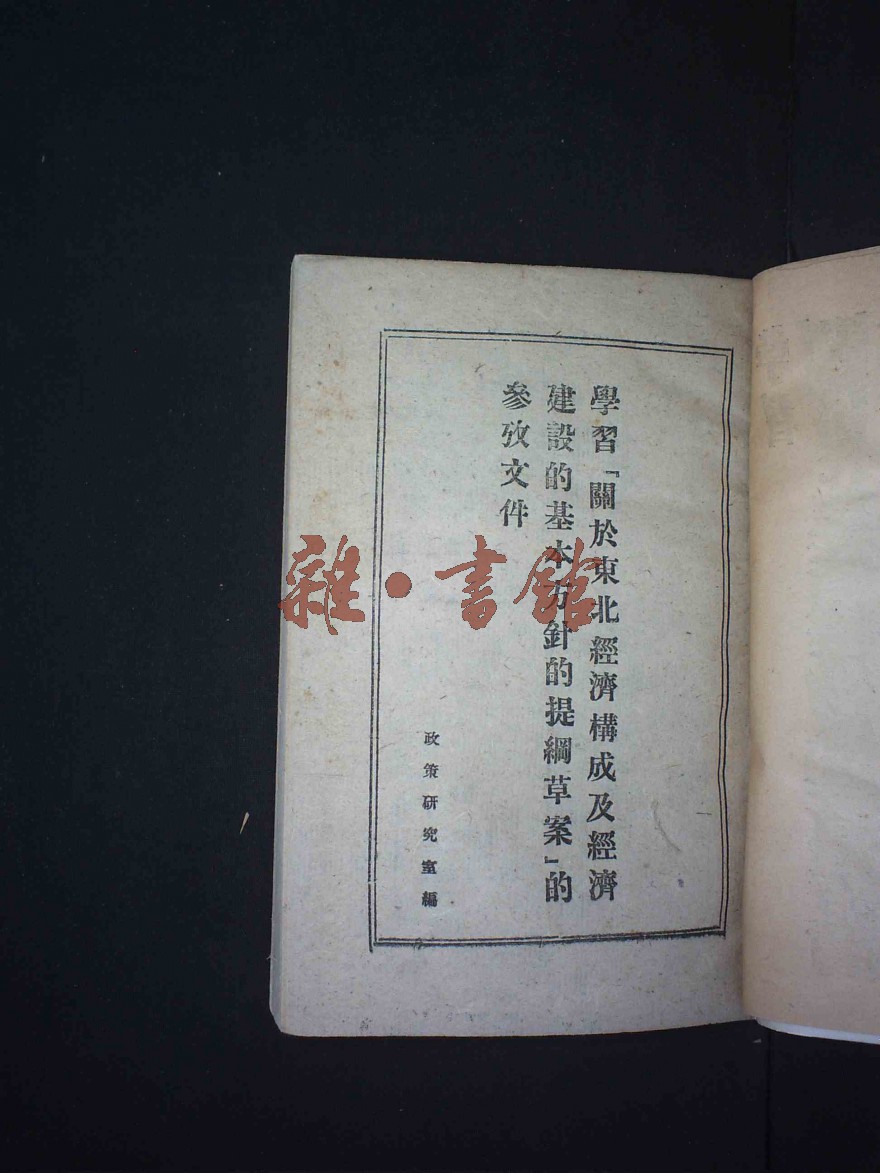 學習「關於東北經濟構成及經濟
建設的基本方針的提綱草案」的
參攷文件
政策研究室編
雜·書館